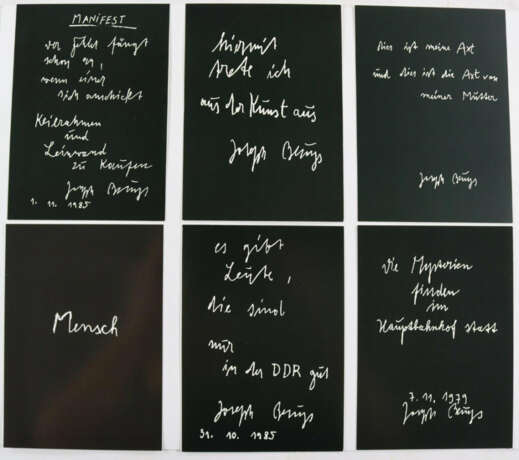 MANIFEST
der Fehler fängt
schon an,
wenn einer
sich anschickt
Keilrahmen
und
Leinwand
zu kaufen
Joseph Beuys
1. 11. 1985
hiermit
trete ich
aus der Kunst aus
Joseph Beuys
dies ist meine Axt
und dies ist die Axt von
meiner Mutter
Joseph Beuys
Mensch
es gibt
Leute,
die sind
nur
in der DDR gut
Joseph Beuys
31. 10. 1985
die Mysterien
finden
im
Hauptbahnhof statt
7. 11. 1979
Joseph Beuys